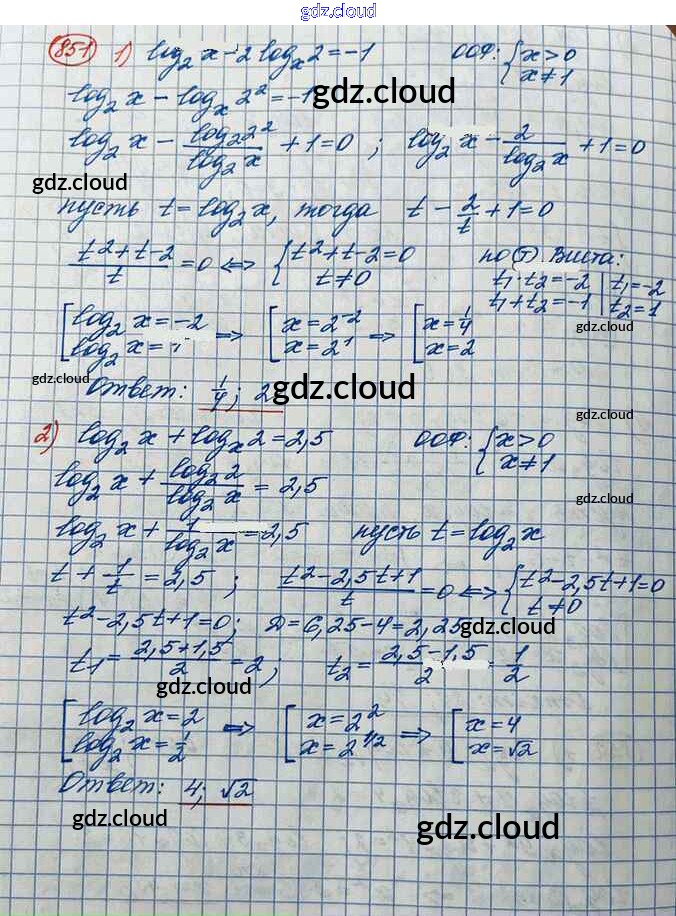 gdz.cloud
851 1) log₂ x - 2 log_x 2 = -1 ООФ: { x > 0
x ≠ 1
log₂ x - log_x 2² = -1 gdz.cloud
log₂ x - log₂2²/log₂x + 1 = 0 ; log₂ x - 2/log₂x + 1 = 0
gdz.cloud
пусть t = log₂x, тогда t - 2/t + 1 = 0
(t² + t - 2)/t = 0 ⟺ { t² + t - 2 = 0 по (т) Виета:
t ≠ 0 t₁·t₂ = -2 | t₁ = -2
t₁ + t₂ = -1 | t₂ = 1
[ log₂ x = -2 ⟹ [ x = 2⁻² ⟹ [ x = 1/4
log₂ x = 1 x = 2¹ x = 2
gdz.cloud
gdz.cloud
Ответ: 1/4; 2 gdz.cloud
gdz.cloud
2) log₂ x + log_x 2 = 2,5 ООФ: { x > 0
x ≠ 1
log₂ x + log₂2/log₂x = 2,5
gdz.cloud
log₂ x + 1/log₂x = 2,5 пусть t = log₂x
t + 1/t = 2,5 ; (t² - 2,5t + 1)/t = 0 ⟺ { t² - 2,5t + 1 = 0
t ≠ 0
t² - 2,5t + 1 = 0; D = 6,25 - 4 = 2,25
gdz.cloud
t₁ = (2,5 + 1,5)/2 = 2; t₂ = (2,5 - 1,5)/2 = 1/2
gdz.cloud
[ log₂ x = 2 ⟹ [ x = 2² ⟹ [ x = 4
log₂ x = 1/2 x = 2^(1/2) x = √2
Ответ: 4; √2
gdz.cloud
gdz.cloud